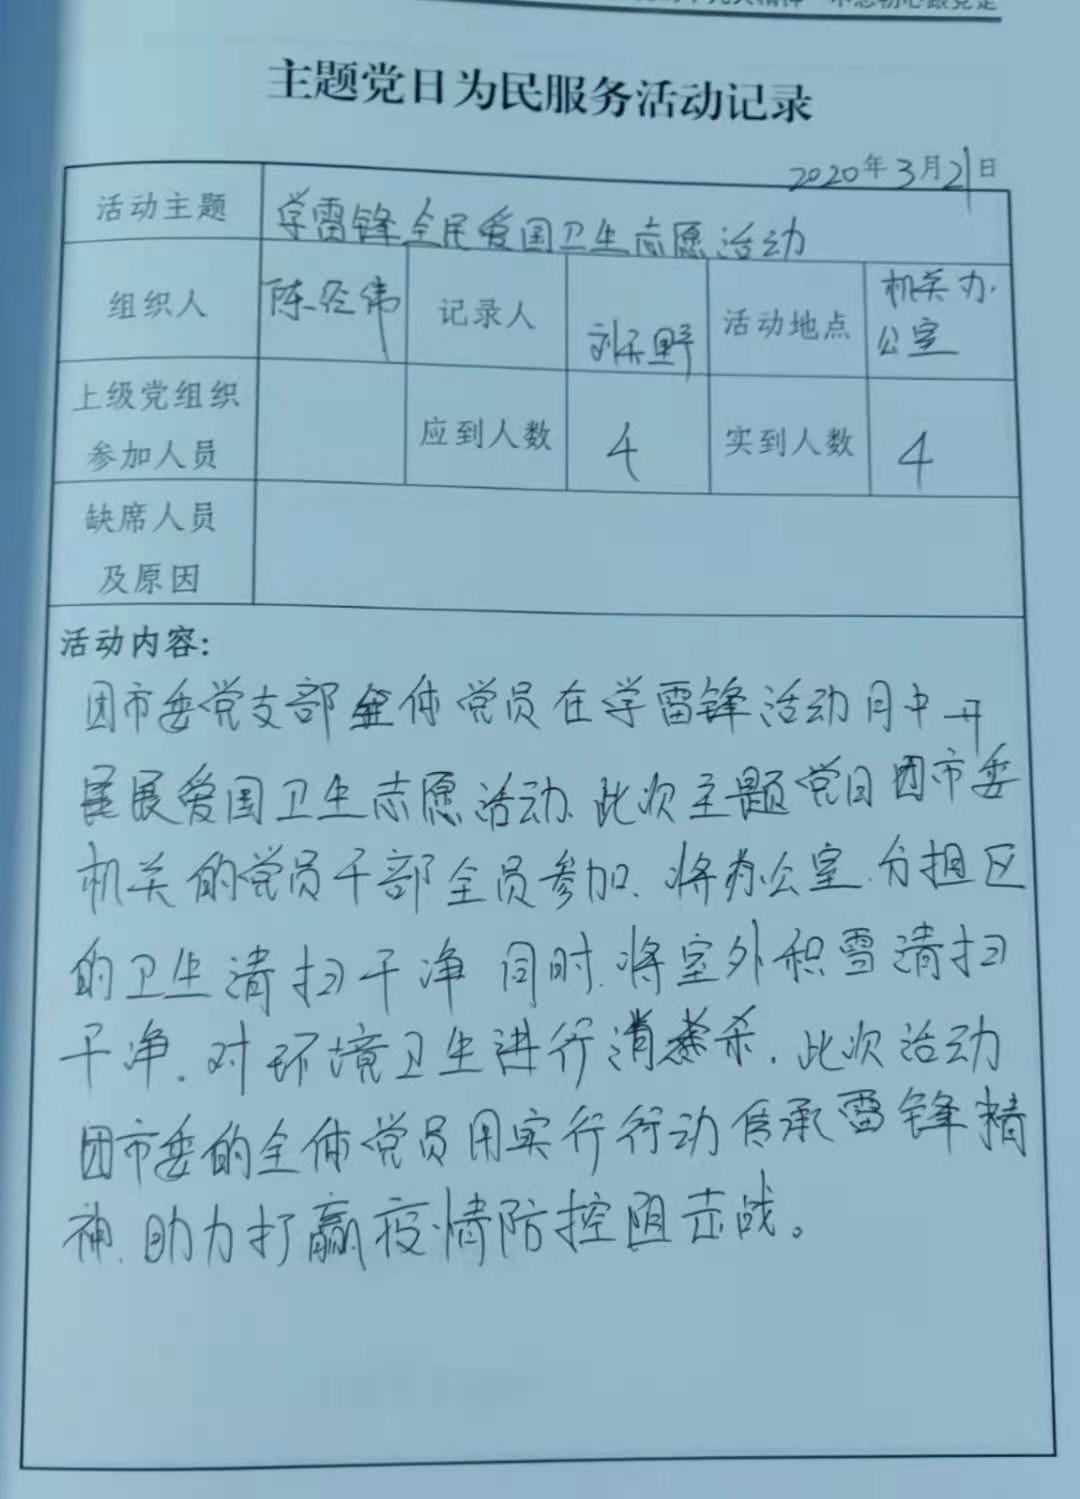 不忘初心跟党走
主题党日为民服务活动记录
2020年3月21日
活动主题 学雷锋全民爱国卫生志愿活动
组织人 陈经伟 记录人 刘天野 活动地点 机关办
公室
上级党组织
参加人员 应到人数 4 实到人数 4
缺席人员
及原因
活动内容:
团市委党支部全体党员在学雷锋活动月中开
展爱国卫生志愿活动.此次主题党日团市委
机关的党员干部全员参加.将办公室.分担区
的卫生清扫干净 同时.将室外积雪清扫
干净.对环境卫生进行消杀.此次活动
团市委的全体党员用实行行动传承雷锋精
神.助力打赢疫情防控阻击战。